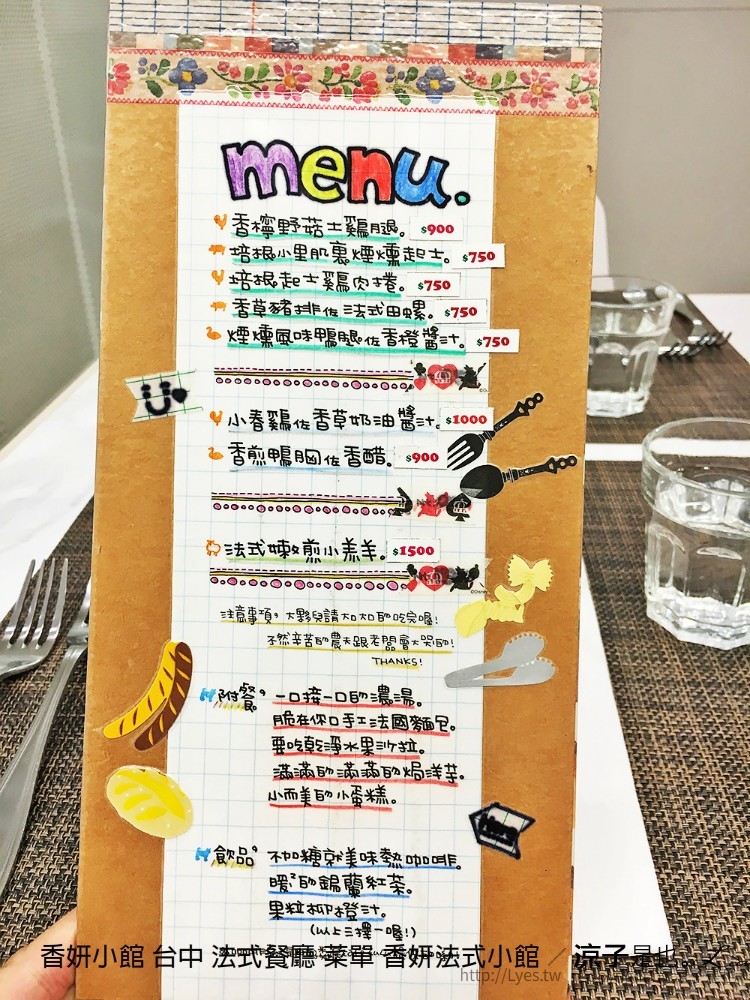 menu.
香檸野菇士雞腿。 $900
培根小里肌裹煙燻起士。 $750
培根起士雞肉捲。 $750
香草豬排佐法式田螺。 $750
煙燻風味鴨腿佐香橙醬汁。 $750
小春雞佐香草奶油醬汁. $1000
香煎鴨胸佐香醋。 $900
法式嫩煎小羔羊。 $1500
注意事項，大夥兒請大口大口的吃完喔!
不然辛苦的農夫跟老闆會大哭的!
THANKS!
附餐， 一口接一口的濃湯。
脆在你口手工法國麵包。
要吃乾淨水果沙拉。
滿滿的滿滿的焗洋芋。
小而美的小蛋糕。
飲品， 不加糖就美味熱咖啡。
暖²的錫蘭紅茶。
果粒柳橙汁。
(以上三擇一喔!)
香妍小館 台中 法式餐廳 菜單 香妍法式小館 ／ 涼子是也
http://Lyes.tw